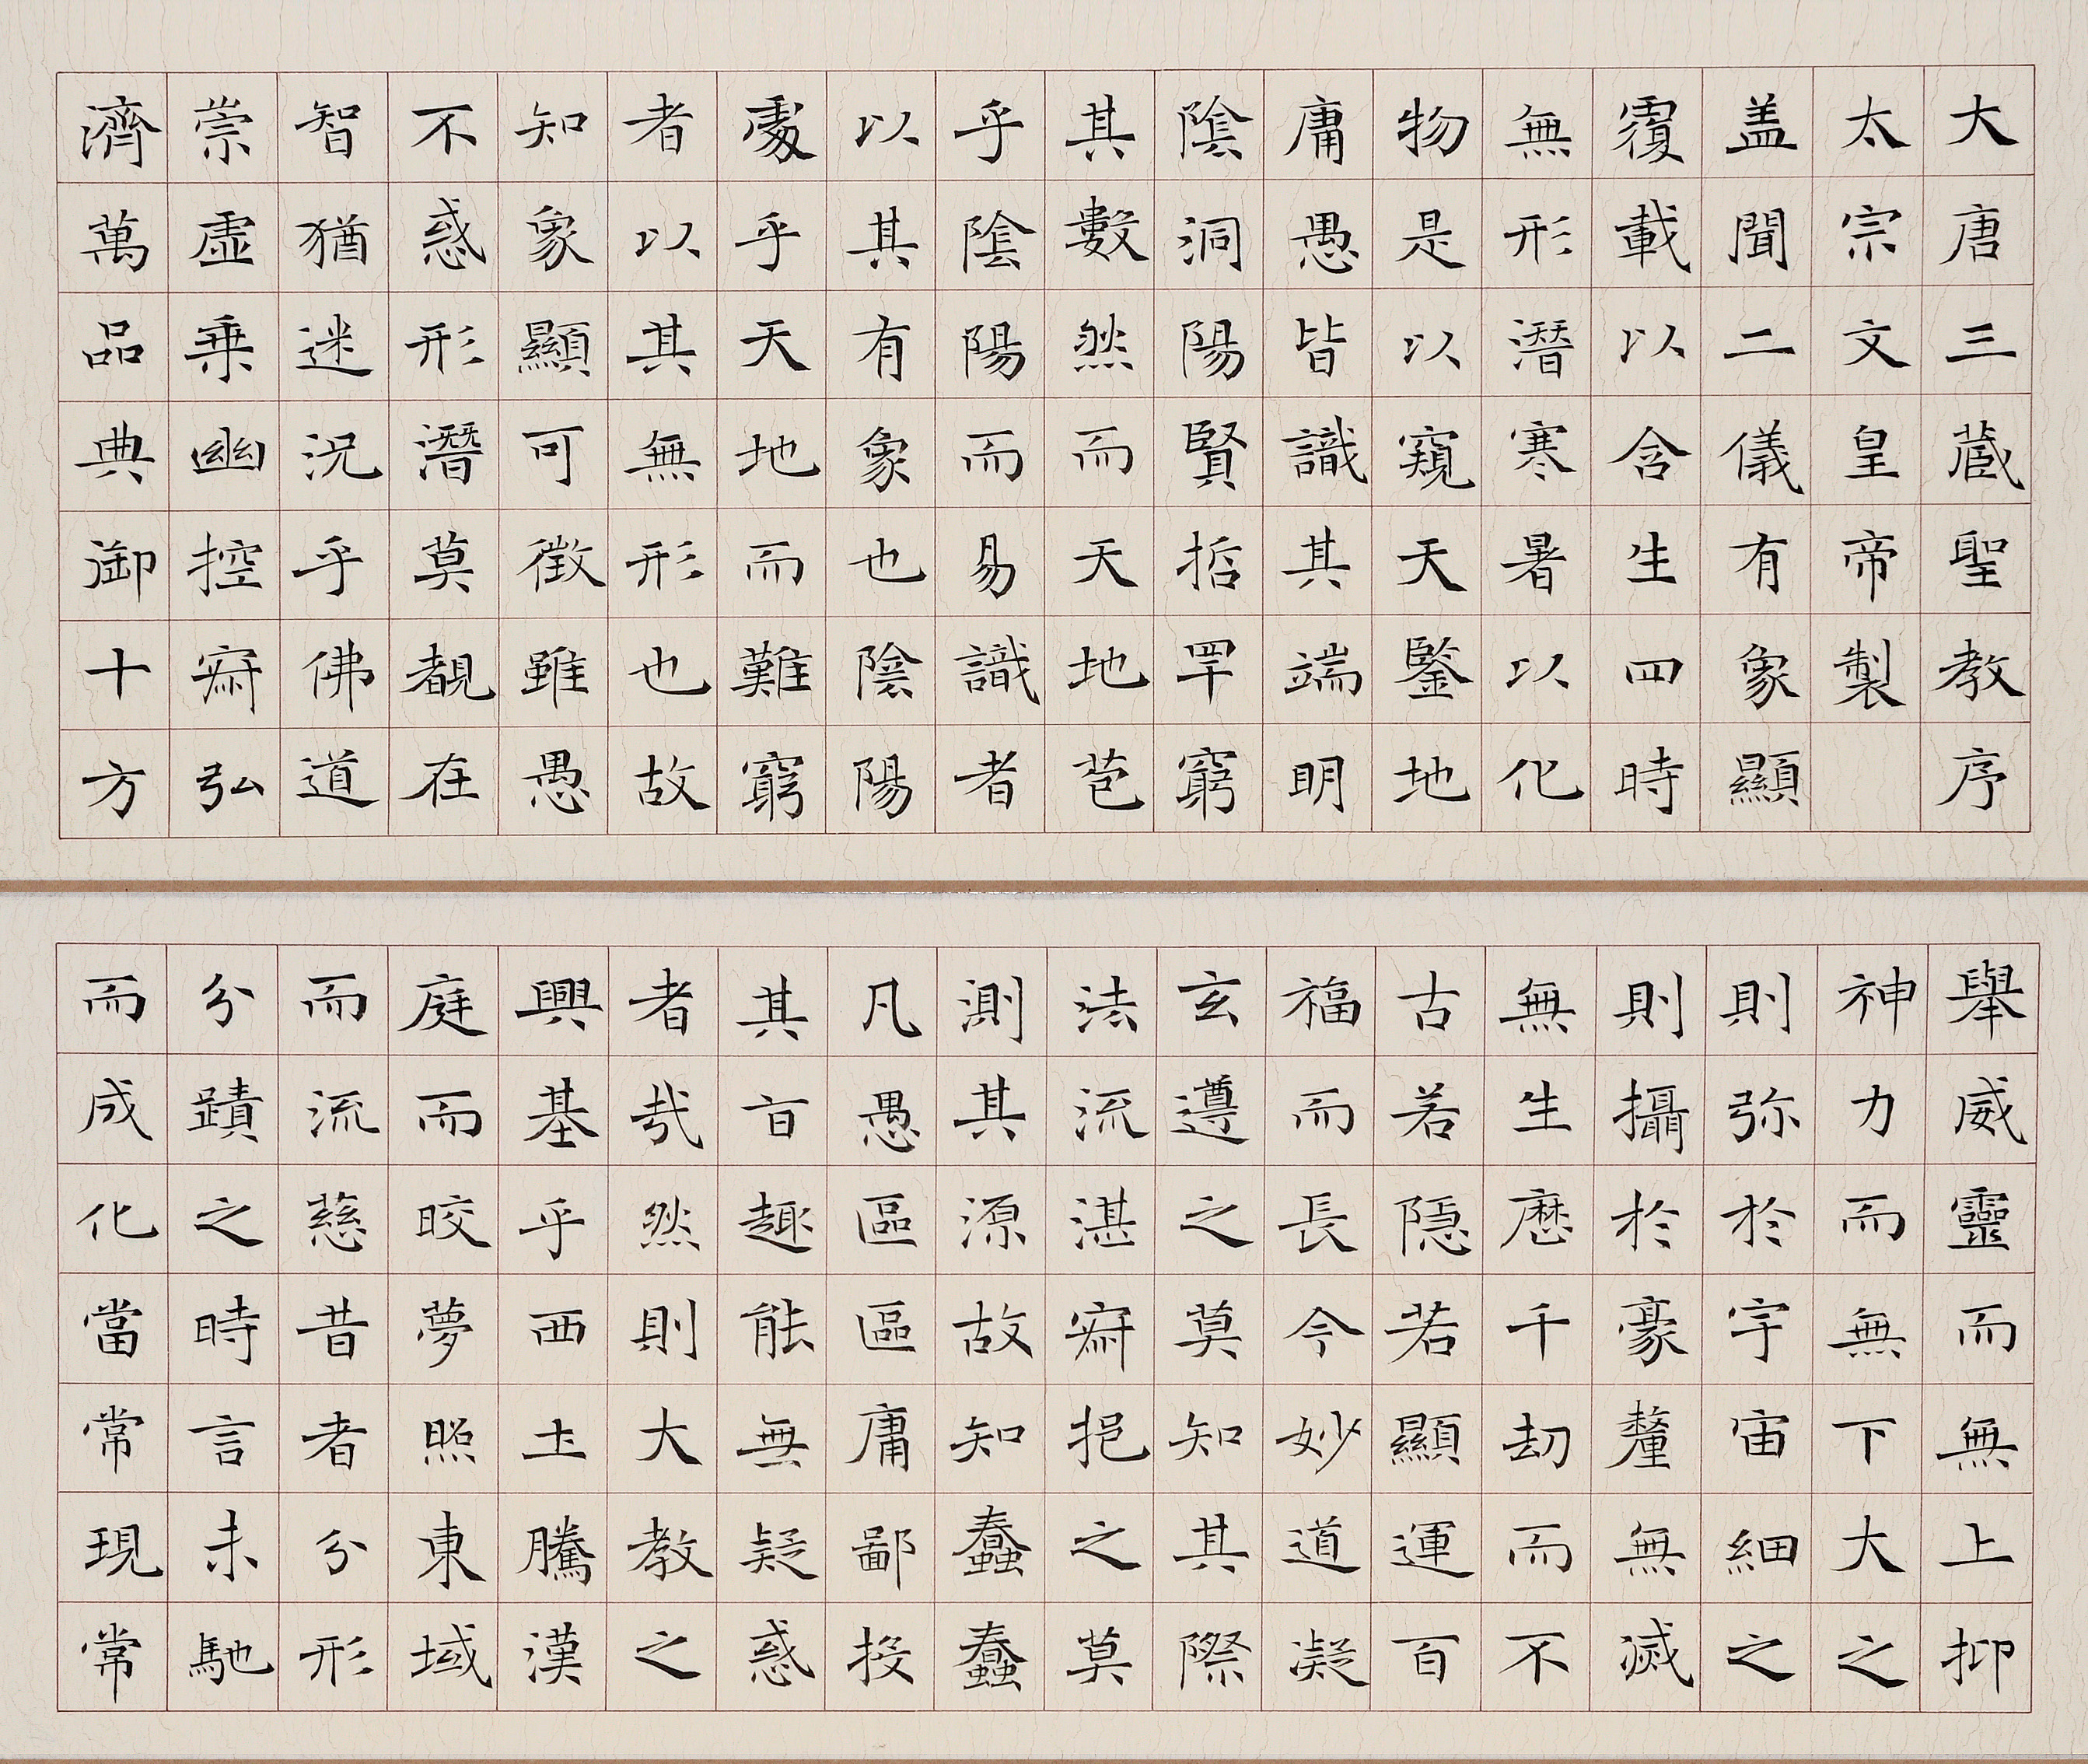 大唐三蔵聖教序
太宗文皇帝製
盖聞二儀有象顯
覆載以含生四時
無形潛寒暑以化
物是以窺天鑒地
庸愚皆識其端明
陰洞陽賢哲罕窮
其數然而天地苞
乎陰陽而易識者
以其有象也陰陽
處乎天地而難窮
者以其無形也故
知象顯可徵雖愚
不惑形潛莫覩在
智猶迷況乎佛道
崇虛乗幽控寂弘
濟萬品典御十方
舉威靈而無上抑
神力而無下大之
則弥於宇宙細之
則攝於豪釐無滅
無生歷千劫而不
古若隱若顯運百
福而長今妙道凝
玄遵之莫知其際
法流湛寂挹之莫
測其源故知蠢蠢
凡愚區區庸鄙投
其旨趣能無疑惑
者哉然則大教之
興基乎西土騰漢
庭而晈夢照東域
而流慈昔者分形
分蹟之時言未馳
而成化當常現常